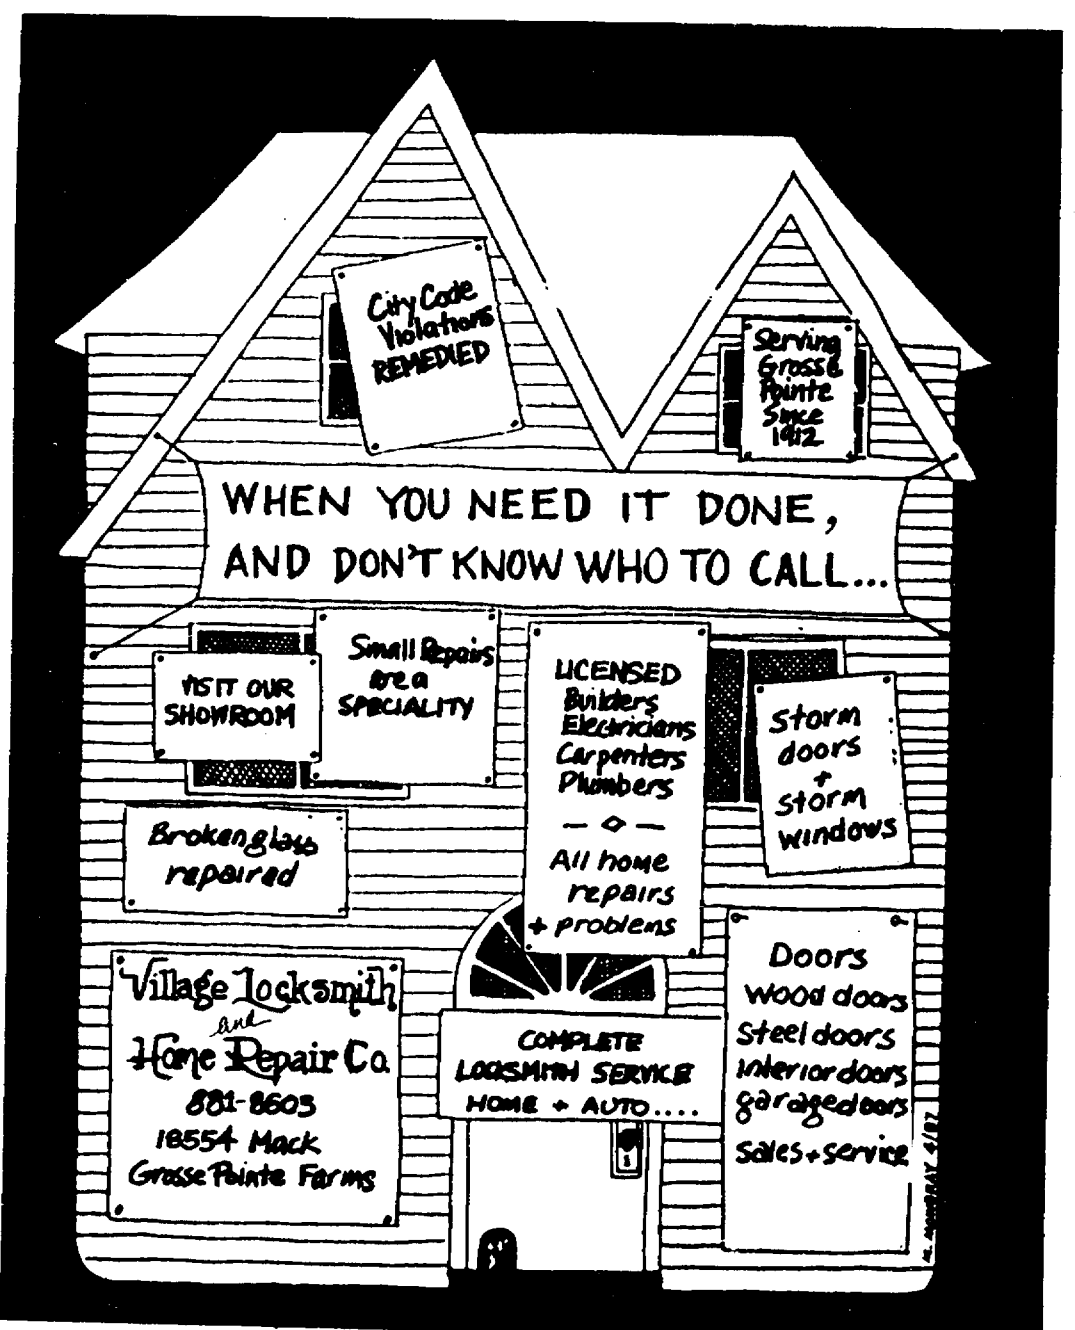 City Code
Violations
REMEDIED
Serving
Grosse
Pointe
Since
1912
WHEN YOU NEED IT DONE,
AND DON'T KNOW WHO TO CALL...
VISIT OUR
SHOWROOM
Small Repairs
are a
SPECIALITY
LICENSED
Builders
Electricians
Carpenters
Plumbers
All home
repairs
+ problems
storm
doors
+
storm
windows
Broken glass
repaired
Village Locksmith
and
Home Repair Co.
881-8603
18554 Mack
Grosse Pointe Farms
COMPLETE
LOCKSMITH SERVICE
HOME + AUTO....
Doors
wood doors
steel doors
interior doors
garage doors
sales + service
M. MOWBRAY 4/87